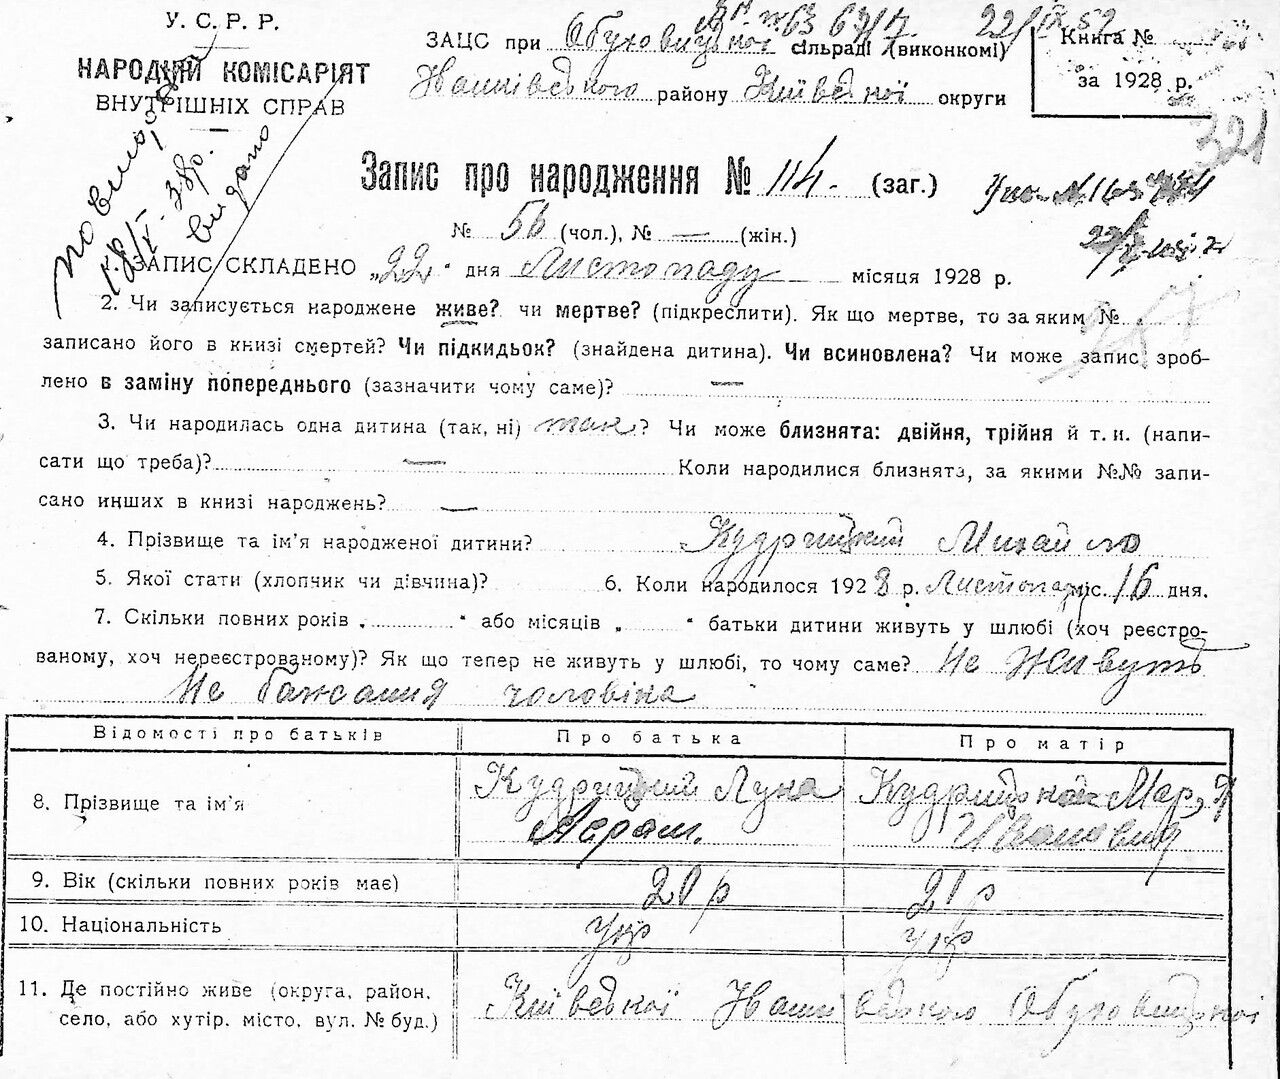 У. С. Р. Р.
НАРОДНІЙ КОМІСАРІЯТ
ВНУТРІШНІХ СПРАВ
22/IX 52
ЗАЦС при Обуховицької сільраді (виконкомі)
Іванківського району Київської округи
Книга №
за 1928 р.
321
повторне
видано
Запис про народження № 114. (заг.)
№ 56 (чол.), № — (жін.)
1. ЗАПИС СКЛАДЕНО „22" дня Листопаду місяця 1928 р.
2. Чи записується народжене живе? чи мертве? (підкреслити). Як що мертве, то за яким №
записано його в книзі смертей? Чи підкидьок? (знайдена дитина). Чи всиновлена? Чи може запис зроб-
лено в заміну попереднього (зазначити чому саме)? —
3. Чи народилась одна дитина (так, ні) так? Чи може близнята: двійня, трійня й т. и. (напи-
сати що треба)? — Коли народилися близнята, за якими №№ запи-
сано инших в книзі народжень? —
4. Прізвище та ім'я народженої дитини? Кудрицький Михайло
5. Якої стати (хлопчик чи дівчина)? 6. Коли народилося 1928 р. Листопад міс. 16 дня.
7. Скільки повних років „ " або місяців „ " батьки дитини живуть у шлюбі (хоч реєстро-
ваному, хоч нереєстрованому)? Як що тепер не живуть у шлюбі, то чому саме? Не живуть
Не бажання чоловіка
Відомості про батьків Про батька Про матір
8. Прізвище та ім'я Кудрицький Лука Кудрицька Марія
Абрам. Ивановна
9. Вік (скільки повних років має) 20 р 21 р
10. Національність Укр Укр
11. Де постійно живе (округа, район,
село, або хутір, місто, вул. № буд.) Київської Іванківського Обуховицької